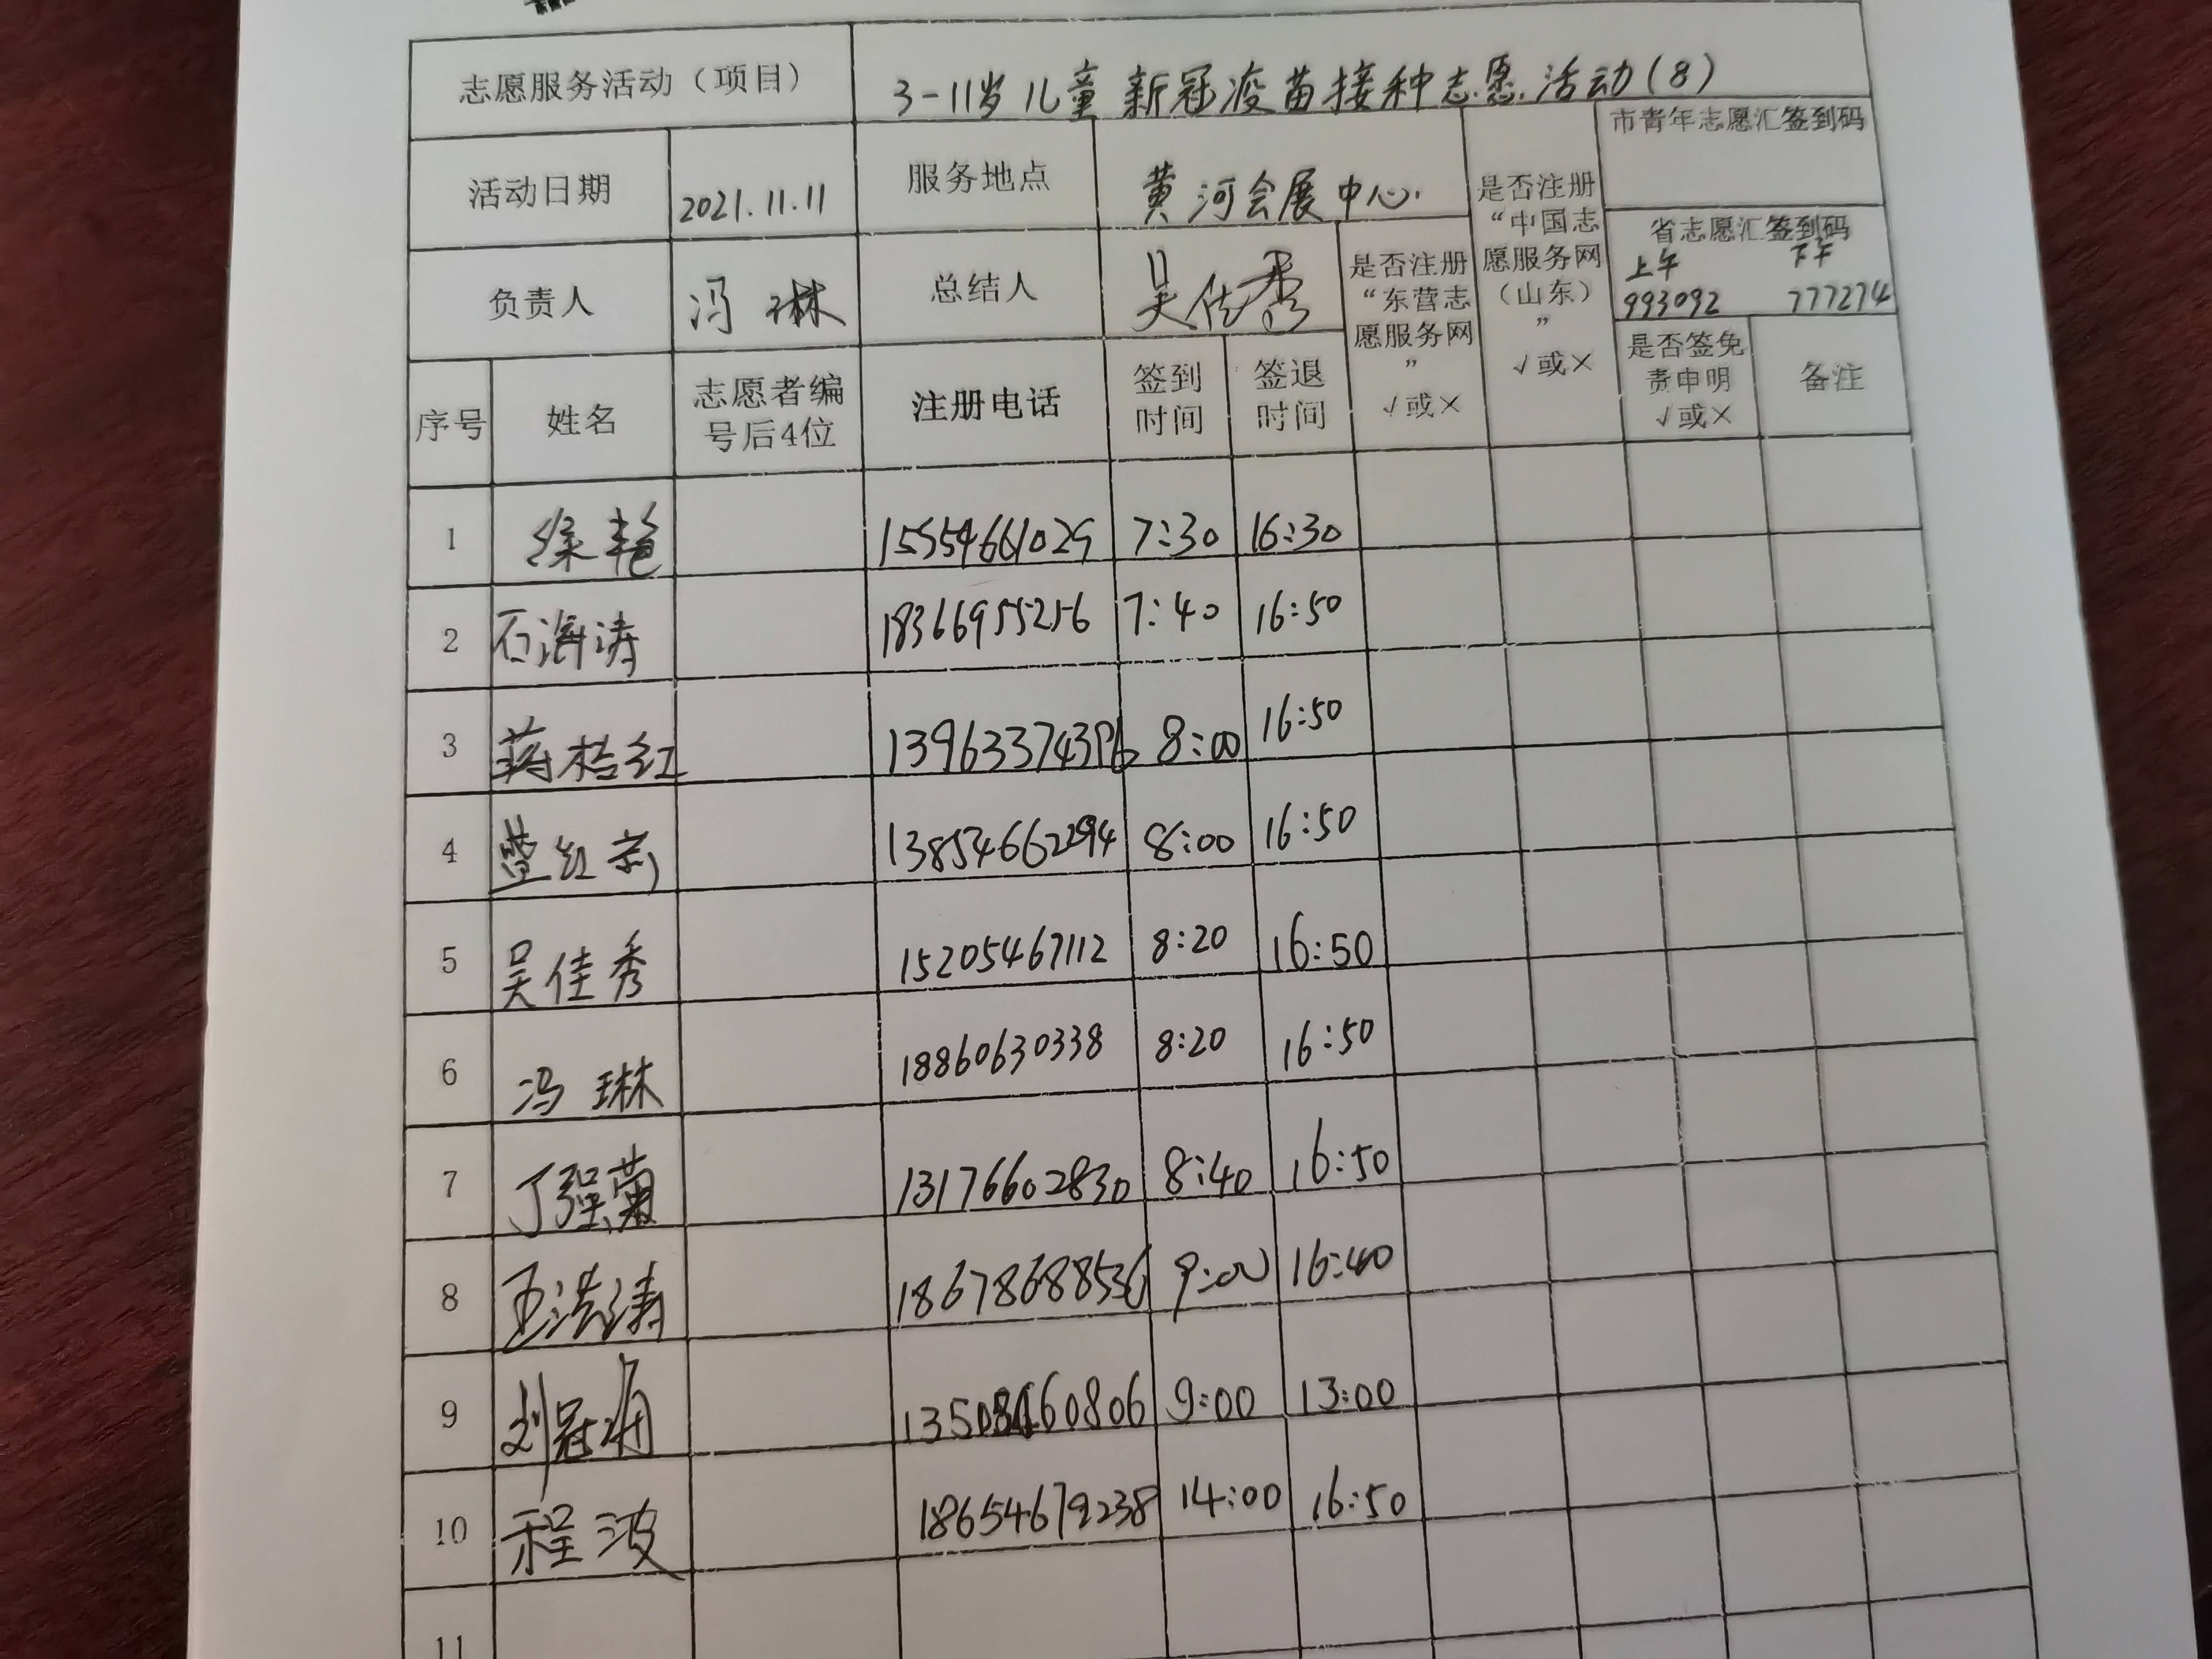 志愿服务活动（项目） 3-11岁儿童新冠疫苗接种志愿活动(8)
活动日期 2021.11.11 服务地点 黄河会展中心. 是否注册“中国志愿服务网（山东）” √或× 市青年志愿汇签到码
省志愿汇签到码
上午 下午
993092 777274
负责人 冯琳 总结人 吴佳秀 是否注册“东营志愿服务网” √或×
序号 姓名 志愿者编号后4位 注册电话 签到时间 签退时间 是否签免责申明 √或× 备注
1 徐艳 15554661029 7:30 16:30
2 石海涛 18366955256 7:40 16:50
3 蒋桂红 13963374396 8:00 16:50
4 红莉 13854662294 8:00 16:50
5 吴佳秀 15205467112 8:20 16:50
6 冯琳 18860630338 8:20 16:50
7 丁强菊 13176602830 8:40 16:50
8 王洪涛 18678688536 9:00 16:40
9 刘冠 9:00 13:00
10 程波 18654679238 14:00 16:50
11